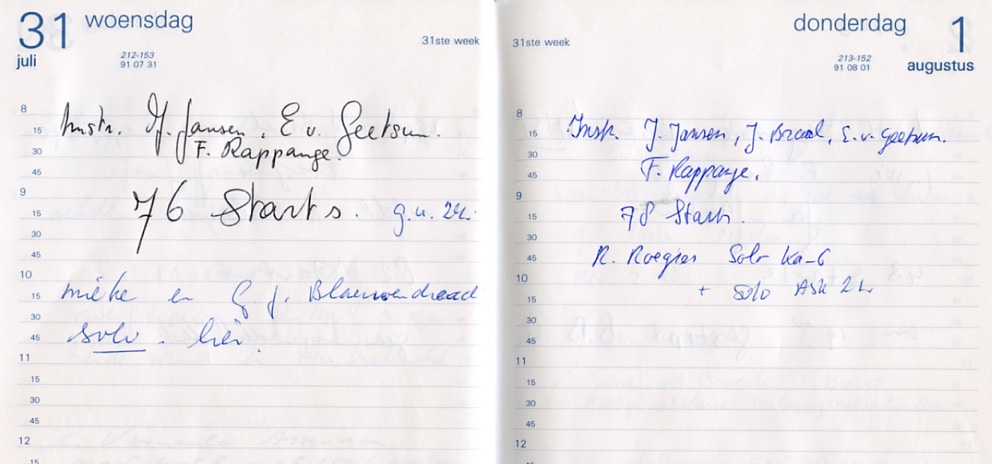 31 woensdag
juli
212-153
91 07 31
31ste week
8
Instr. J. Jansen, E v. Geetsum.
15
F. Rappange.
30
45
9
76 Starts. g.u. 24.
15
30
45
10
mieke en G. J. Blauwendraad
15
30
solo. hier.
45
11
15
30
45
12
15
donderdag 1
augustus
31ste week
213-152
91 08 01
8
Instr. J. Jansen, J. Braal, E. v. Geetsum.
15
30
F. Rappange.
45
9
78 Starts.
15
30
R. Roegies Solo Ka-6
45
10
+ Solo ASK 21.
15
30
45
11
15
30
45
12
15